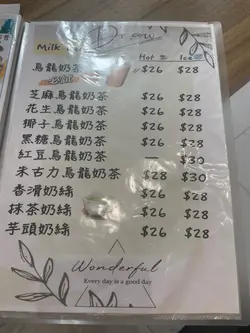 Milk
Hot Ice
烏龍奶茶 $26 $28
芝麻烏龍奶茶 $26 $28
花生烏龍奶茶 $26 $28
椰子烏龍奶茶 $26 $28
黑糖烏龍奶茶 $26 $28
紅豆烏龍奶茶 — $30
朱古力烏龍奶茶 $28 $30
香滑奶絲 $26 $28
抹茶奶絲 $26 $28
芋頭奶絲 $26 $28
Wonderful
Every day is a good day